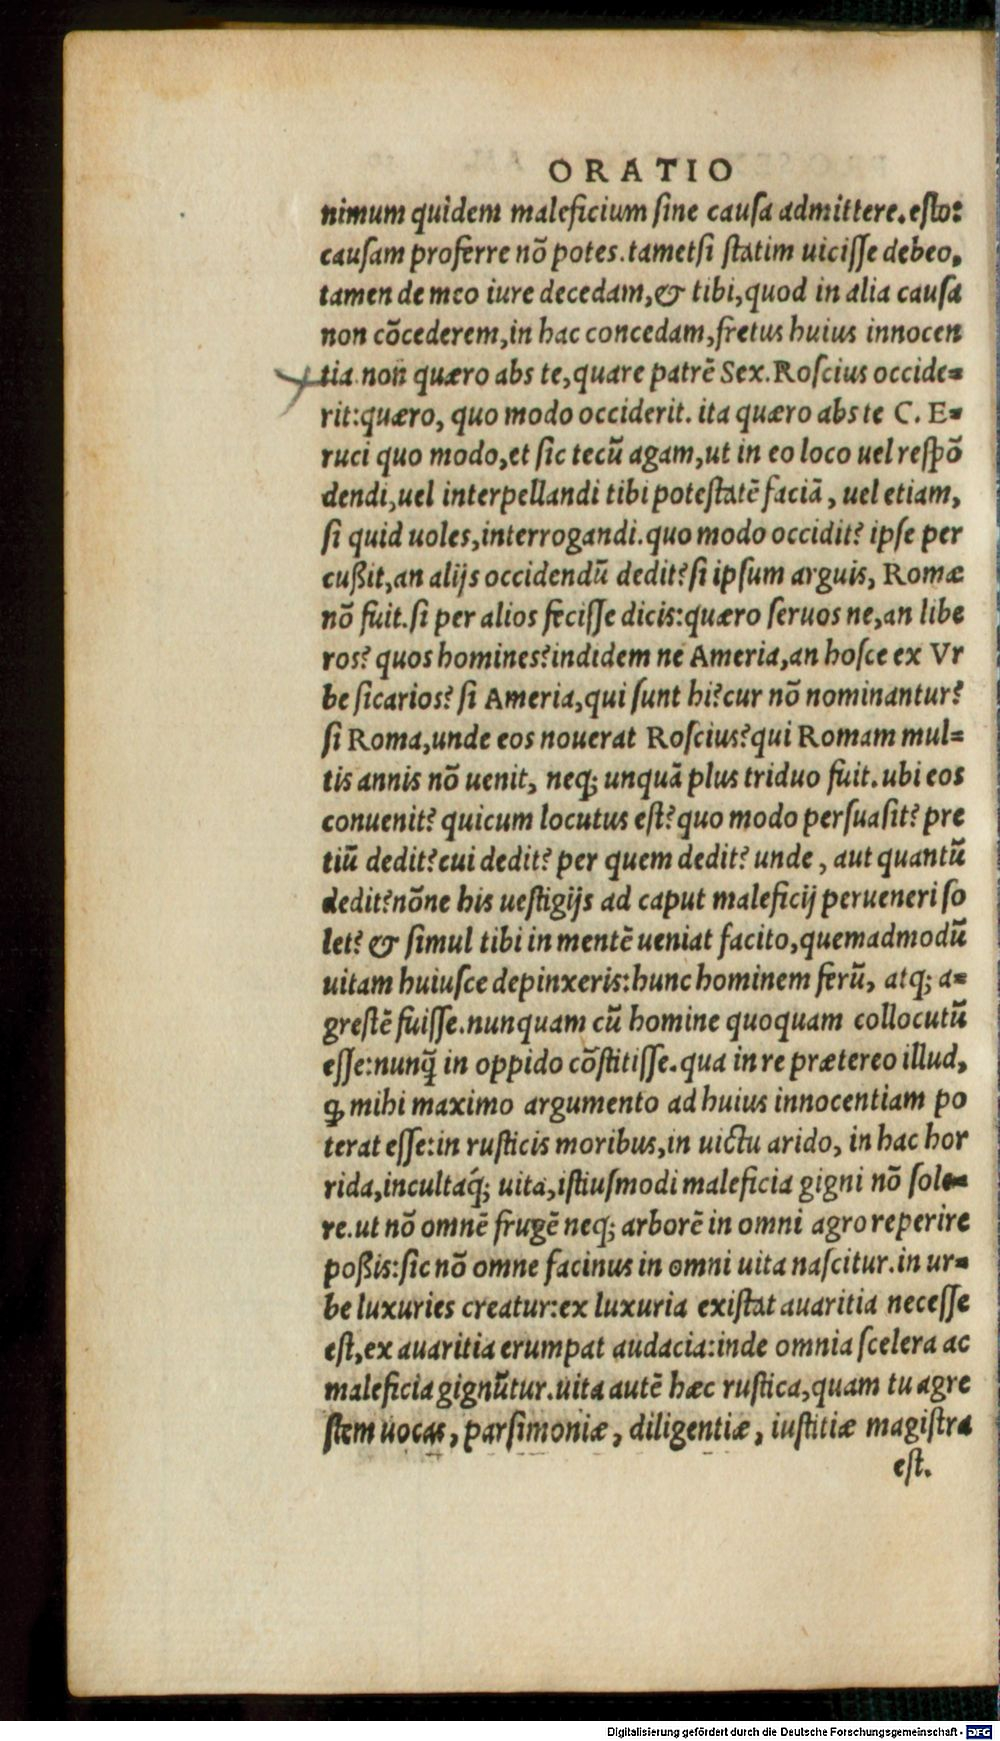 ORATIO
nimum quidem maleficium ſine cauſa admittere. eſto:
cauſam proferre nõ potes. tametſi ſtatim uiciſſe debeo,
tamen de meo iure decedam, & tibi, quod in alia cauſa
non cõcederem, in hac concedam, fretus huius innocen
tia non quæro abs te, quare patrẽ Sex. Roſcius occide=
rit: quæro, quo modo occiderit. ita quæro abs te C. E=
ruci quo modo, et ſic tecũ agam, ut in eo loco uel reſpõ
dendi, uel interpellandi tibi poteſtatẽ faciã, uel etiam,
ſi quid uoles, interrogandi. quo modo occidit? ipſe per
cußit, an alijs occidendũ dedit? ſi ipſum arguis, Romæ
nõ fuit. ſi per alios feciſſe dicis: quæro ſeruos ne, an libe
ros? quos homines? indidem ne Ameria, an hoſce ex Vr
be ſicarios? ſi Ameria, qui ſunt hi? cur nõ nominantur?
ſi Roma, unde eos nouerat Roſcius? qui Romam mul=
tis annis nõ uenit, neq; unquã plus triduo fuit. ubi eos
conuenit? quicum locutus eſt? quo modo perſuaſit? pre
tiũ dedit? cui dedit? per quem dedit? unde, aut quantũ
dedit? nõne his ueſtigijs ad caput maleficij perueneri ſo
let? & ſimul tibi in mentẽ ueniat facito, quemadmodũ
uitam huiuſce depinxeris: hunc hominem ferũ, atq; a=
greſtẽ fuiſſe. nunquam cũ homine quoquam collocutũ
eſſe: nunq̃ in oppido cõſtitiſſe. qua in re prætereo illud,
ꝙ mihi maximo argumento ad huius innocentiam po
terat eſſe: in ruſticis moribus, in uictu arido, in hac hor
rida, incultaq́; uita, iſtiuſmodi maleficia gigni nõ ſole=
re. ut nõ omnẽ frugẽ neq; arborẽ in omni agro reperire
poßis: ſic nõ omne facinus in omni uita naſcitur. in ur=
be luxuries creatur: ex luxuria exiſtat auaritia neceſſe
eſt, ex auaritia erumpat audacia: inde omnia ſcelera ac
maleficia gignũtur. uita autẽ hæc ruſtica, quam tu agre
ſtem uocas, parſimoniæ, diligentiæ, iuſtitiæ magiſtra
eſt.
Digitalisierung gefördert durch die Deutsche Forschungsgemeinschaft - DFG